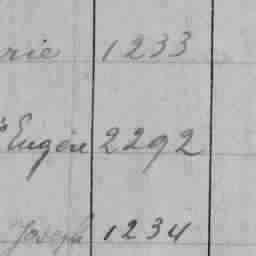 rie 1233
Eugène 2292
Joseph 1234